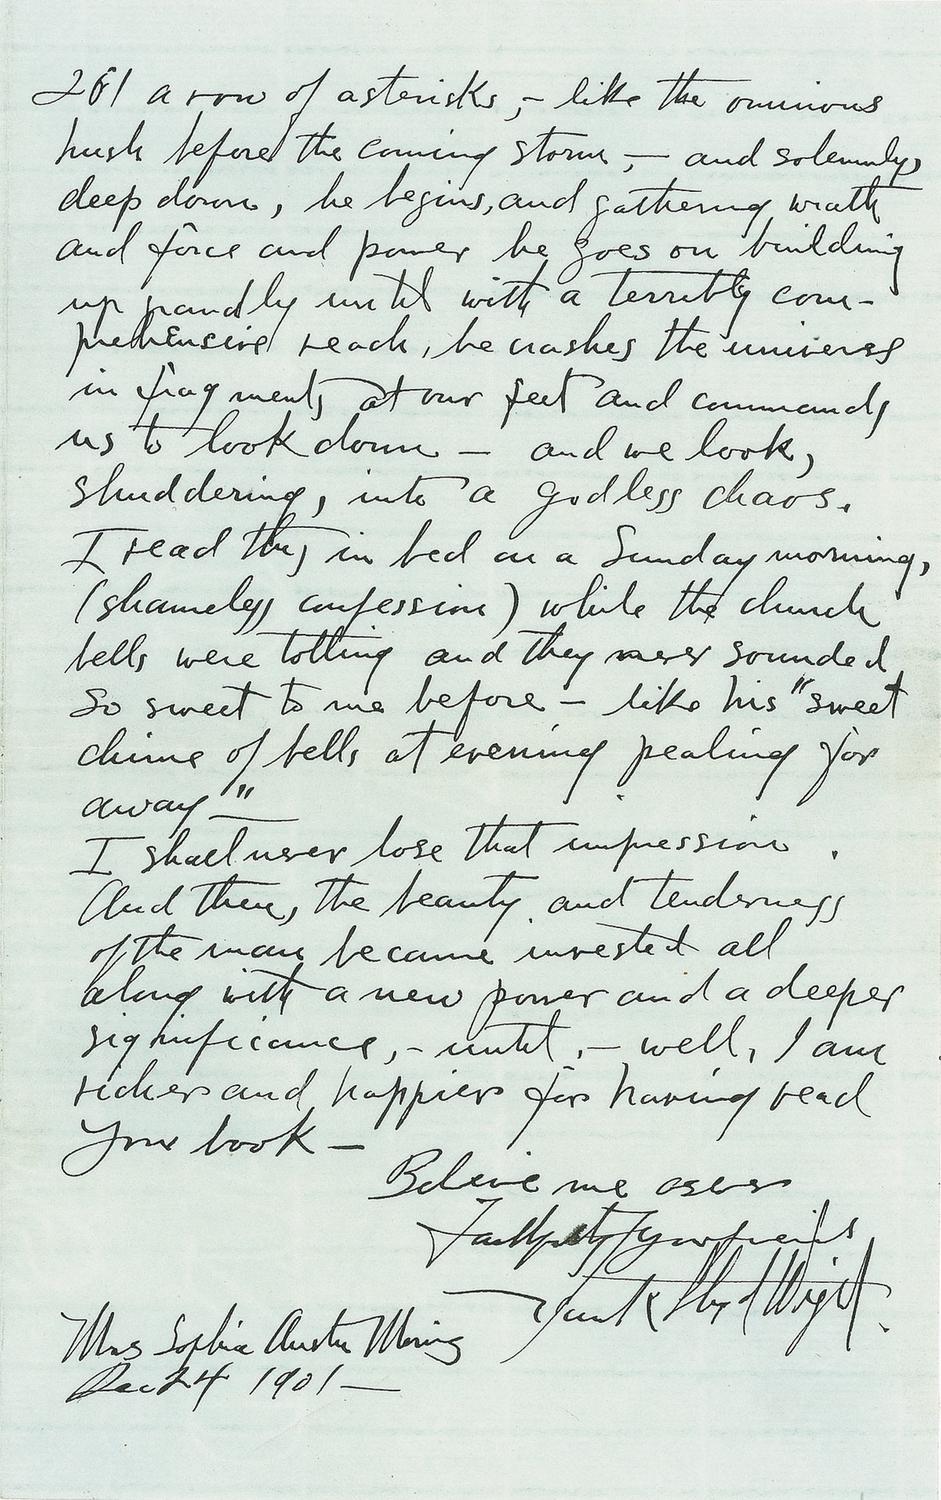 261 a row of asterisks, – like the ominous
hush before the coming storm, — and solemnly,
deep down, he begins, and gathering wrath
and force and power he goes on building
up grandly until with a terribly com-
prehensive reach, he crashes the universe
in fragments at our feet and commands
us to look down — and we look,
shuddering, into a godless chaos.
I read this in bed on a Sunday morning,
(shameless confession) while the church
bells were tolling and they never sounded
so sweet to me before — like his "sweet
chime of bells at evening pealing far
away"—
I shall never lose that impression.
And then, the beauty and tenderness
of the man became invested all
along with a new power and a deeper
significance, – until, – well, I am
richer and happier for having read
your book —
Believe me as ever
Faithfully your friend
Frank Lloyd Wright.
Mrs Sophia Austin
Dec 24 1901 —